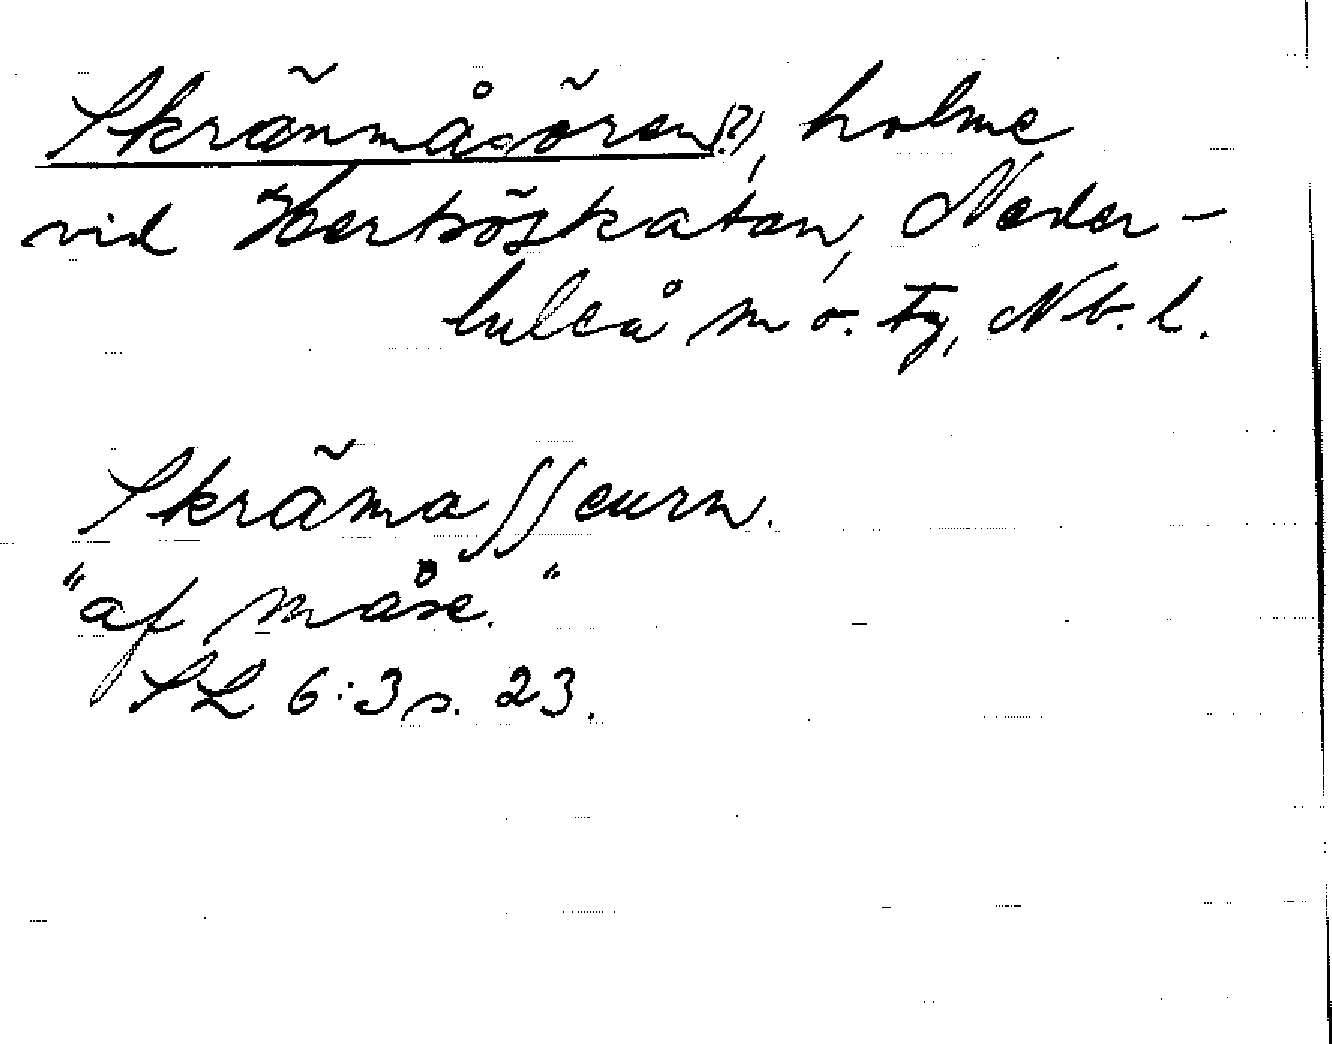 Skränmåsören(?), holme
vid Hertsöskatan, Neder-
luleå sn o. tg, Nb. l.
Skrämaʃʃeurn.
"af måse."
SL 6:3 s. 23.